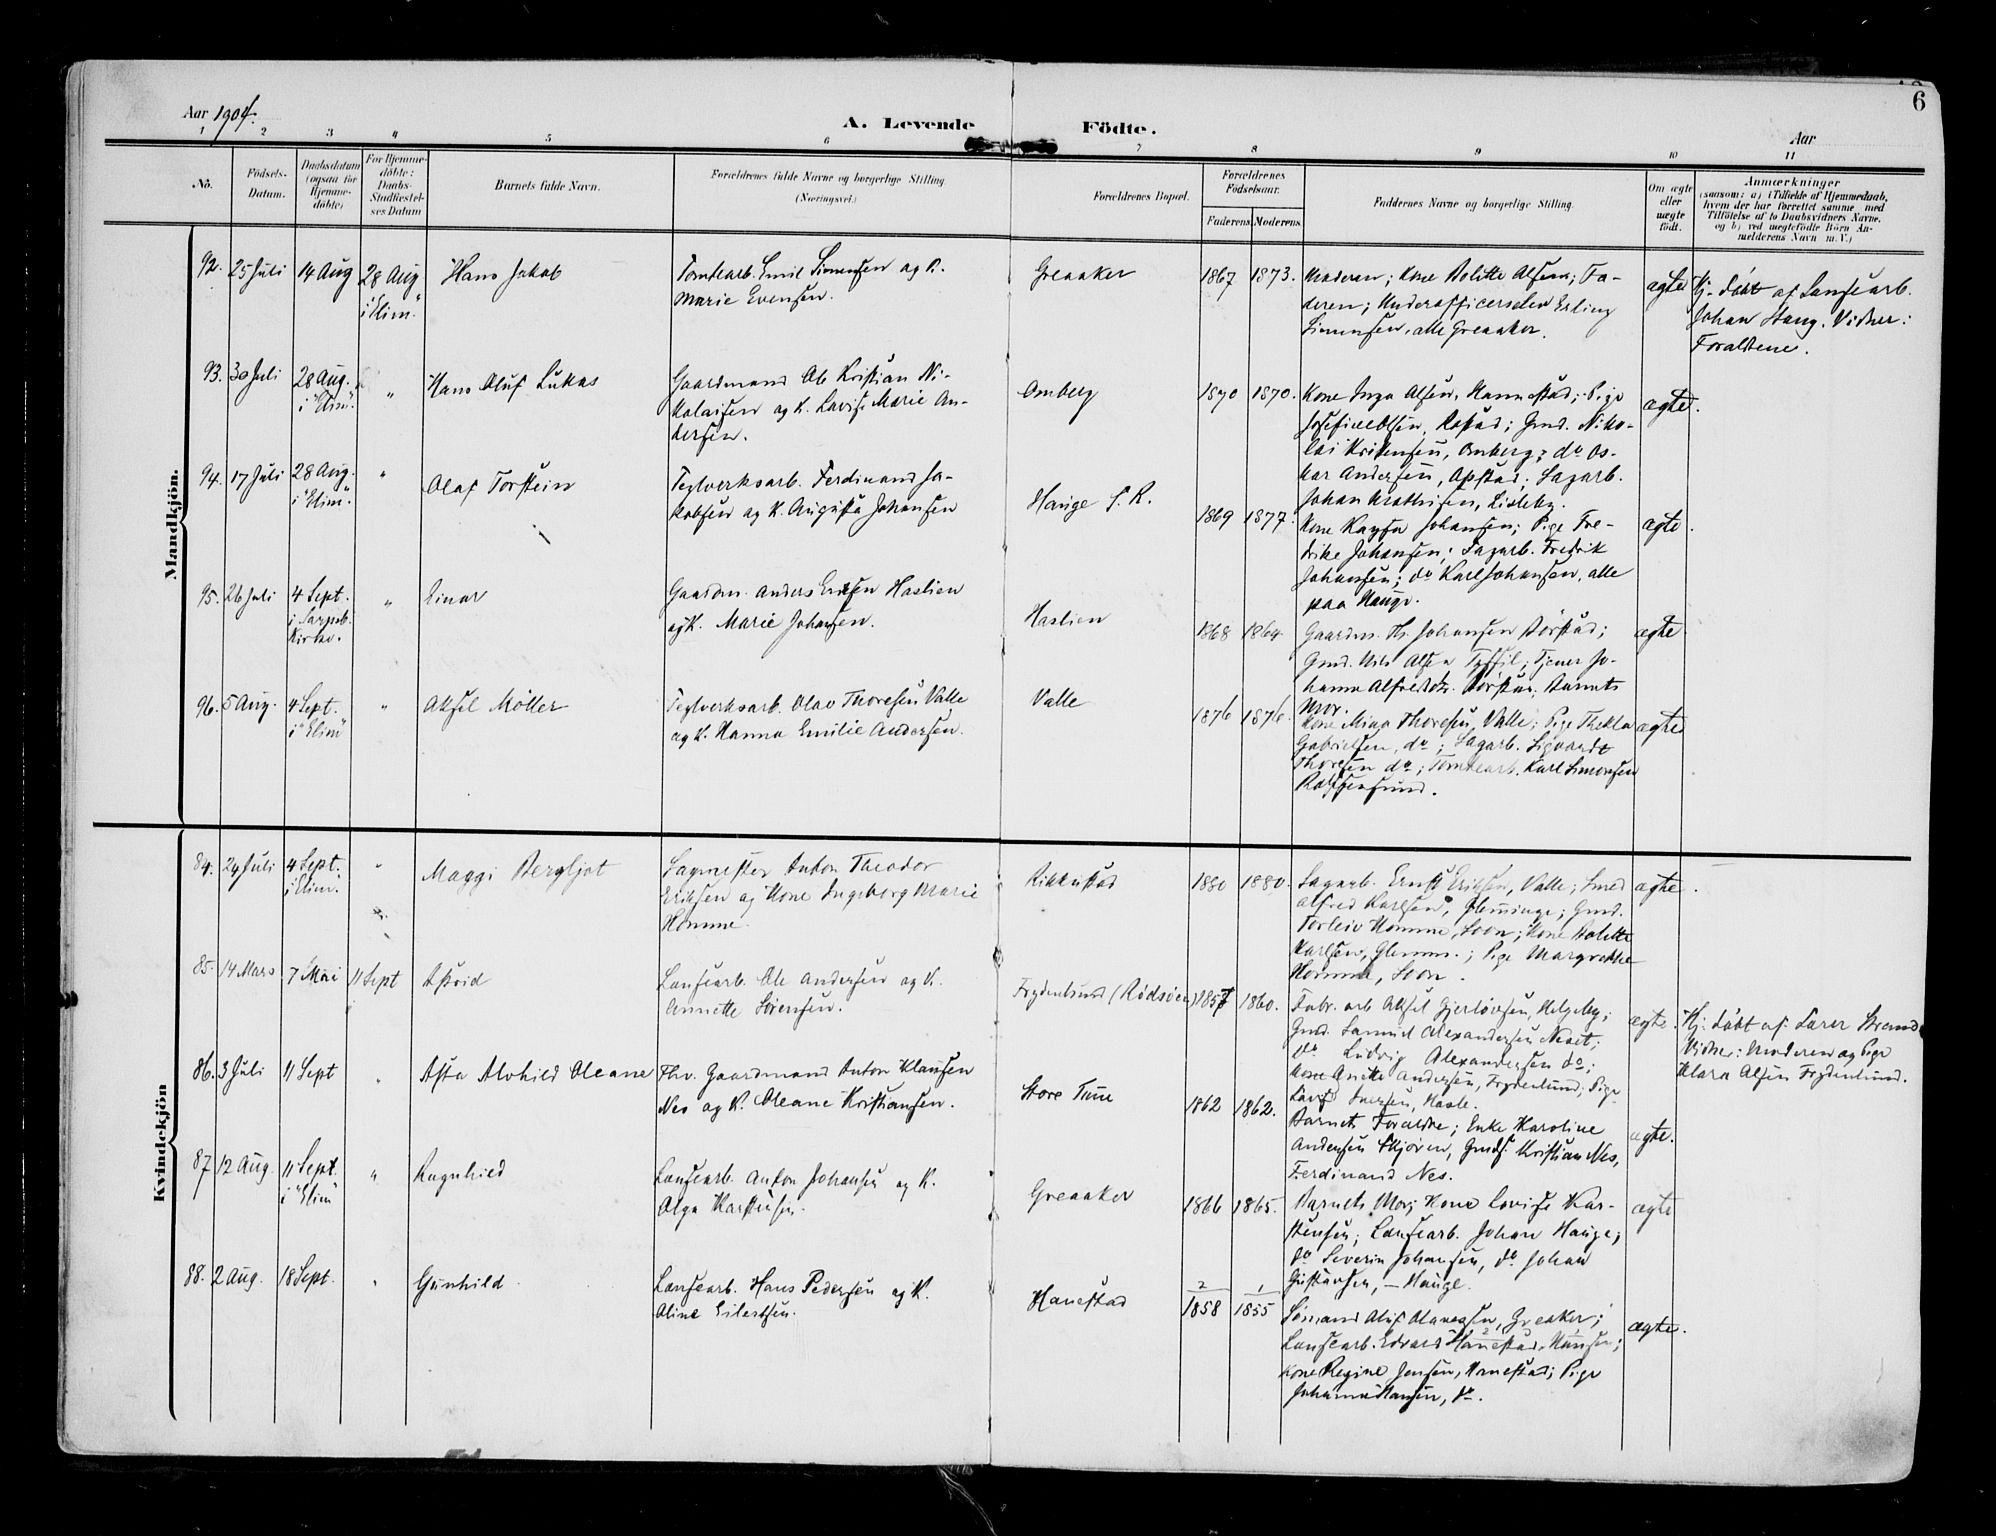 6
Aar 1904.
A. Levende Födte.
Aar
1 2 3 4 5 6 7 8 9 10 11
No.
Födsels-
Datum.
Daabsdatum
(ogsaa for
Hjemme-
döbte)
For Hjemme-
döbte:
Daabs-
Stadfæstel-
ses Datum
Barnets fulde Navn.
Forældrenes fulde Navne og borgerlige Stilling.
(Næringsvei.)
Forældrenes Bopæl.
Forældrenes
Födselsaar.
Faderens. Moderens.
Faddernes Navne og borgerlige Stilling.
Om ægte
eller
uægte
födt.
Anmærkninger
(saasom: a) i Tilfælde af Hjemmedaab,
hvem der har forrettet samme med
Tilföielse af to Daabsvidners Navne,
og b) ved uegtefödte Börn An-
melderens Navn m. V.)
Mandkjön.
92. 25 Juli 14 Aug 28 Aug
i "Elim."
Hans Jakob
Tomtearb. Emil Simensen og K.
Marie Evensen.
Greaaker
1867 1873.
Moderen; Kone Bolette Olsen; Fa-
deren; Underofficerselev Erling
Simensen, alle Greaaker.
ægte
Hj. döbt af Landsearb.
Johan Haug. Vidner:
Foraldrene.
93. 30 Juli 28 Aug.
i "Elim."
"
Hans Oluf Lukas
Gaardmand Ole Kristian Ni-
kolaisen og K. Lovise Marie An-
dersen.
Omberg
1870 1870.
Kone Inga Olsen, Hannestad; Pige
Josefine Olsen, Opstad; Gmd. Niko-
lai Kristensen, Omberg; do Os-
kar Andersen, Opstad; Sagarb.
Johan Mathisen, Lisleby.
ægte.
94. 17 Juli 28 Aug.
i "Elim."
"
Olaf Torstein
Teglverksarb. Ferdinand Ja-
kobsen og K. Augusta Johansen
Hauge S. R.
1869 1877.
Kone Kaysa Johansen; Pige Fre-
drike Johansen; Sagarb. Fredrik
Johansen; do Karl Johansen, alle
paa Hauge.
ægte.
95. 26 Juli 4 Sept.
i Sarpsb.
Kirke.
"
Einar
Gaardm. Anders Hansen Haslien
og K. Marie Johansen.
Haslien
1868 1864.
Gaardm. Th. Johansen Börstad;
Gmd. Nils Olsen; Tjener Jo-
hanna Alfredsdr. Börstad; Barnets
Mor.
ægte.
96. 5 Aug. 4 Sept.
i "Elim"
"
Aksel Möller
Teglverksarb. Olav Thoresen Valle
og K. Hanna Emilie Andersen.
Valle
1876 1876.
Kone Mina Thoresen, Valle; Pige Thekla
Gabrielsen, do; Sagarb. Sigvardt
Thoresen do; Tomtearb. Karl Simonsen
Rolfsensund.
ægte
Kvindekjön
84. 24 Juli 4 Sept.
i "Elim."
"
Maggi Bergljot
Sagmester Anton Theodor
Eriksen og Kone Ingeborg Marie
Homme.
Rikkestad
1880 1880.
Sagarb. Ernst Eriksen, Valle; Smed
Alfred Karlsen, Glemminge; Gmd.
Torleiv Homme, Soon; Kone Bolette
Karlsen, Glemm.; Pige Margrethe
Homme, Soon.
ægte.
85. 14 Mars 7 Mai 11 Sept
Astrid
Landsearb. Ole Andersen og K.
Annette Sörensen.
Frydenlund (Rödsöen)
1857 1860.
Fabr. arb. Aksel Gjerlövsen, Helgeby;
Gmd. Samuel Alexandersen Neset;
do Ludvig Alexandersen do;
Kone Anette Andersen, Frydenlund; Pige
Lovis Iversen, Hasle.
ægte.
Hj. döbt af Lærer Strand
Vidner: Moderen og Pige
Klara Olsen Frydenlund.
86. 3 Juli 11 Sept "
Asta Alvhild Oleane
Fhv. Gaardmand Anton Klausen
Nes og K. Oleane Kristiansen.
Store Tune
1862 1862.
Barnets Foraldre; Enke Karoline
Andersen Skjören, Gmds. Kristian Nes,
Ferdinand Nes.
ægte.
87 12 Aug. 11 Sept.
i "Elim"
"
Ragnhild
Landsearb. Anton Johansen og K.
Olga Karstensen.
Greaaker
1866 1865.
Barnets Mor; Kone Lovise Kar-
stensen; Landsearb. Johan Hauge;
do Severin Johansen, do Johan
Gustavsen, — Hauge.
ægte
88. 2 Aug. 18 Sept. "
Gunhild
Landsearb. Hans Pedersen og K.
Oline Eilertsen.
Hanestad
2
1858
1
1855
Sömand Oluf Olavesen, Greaker;
Landsearb. Edvard Hanestad, Hansen;
Kone Regine Jensen, Hanestad; Pige
Johanna Hansen, do.
ægte.